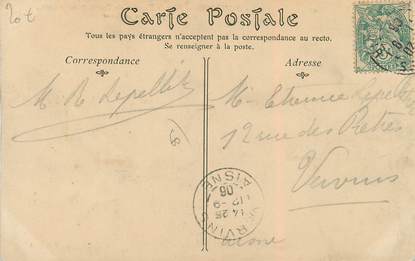 20 t
Carte Postale
Tous les pays étrangers n'acceptent pas la correspondance au recto.
Se renseigner à la poste.
Correspondance
Adresse
M. R Lepelletier
Mr Etienne Lepelletier
12 rue des Prêtres
Vervins
Aisne
VERVINS
AISNE
14 25
12 - 9
06